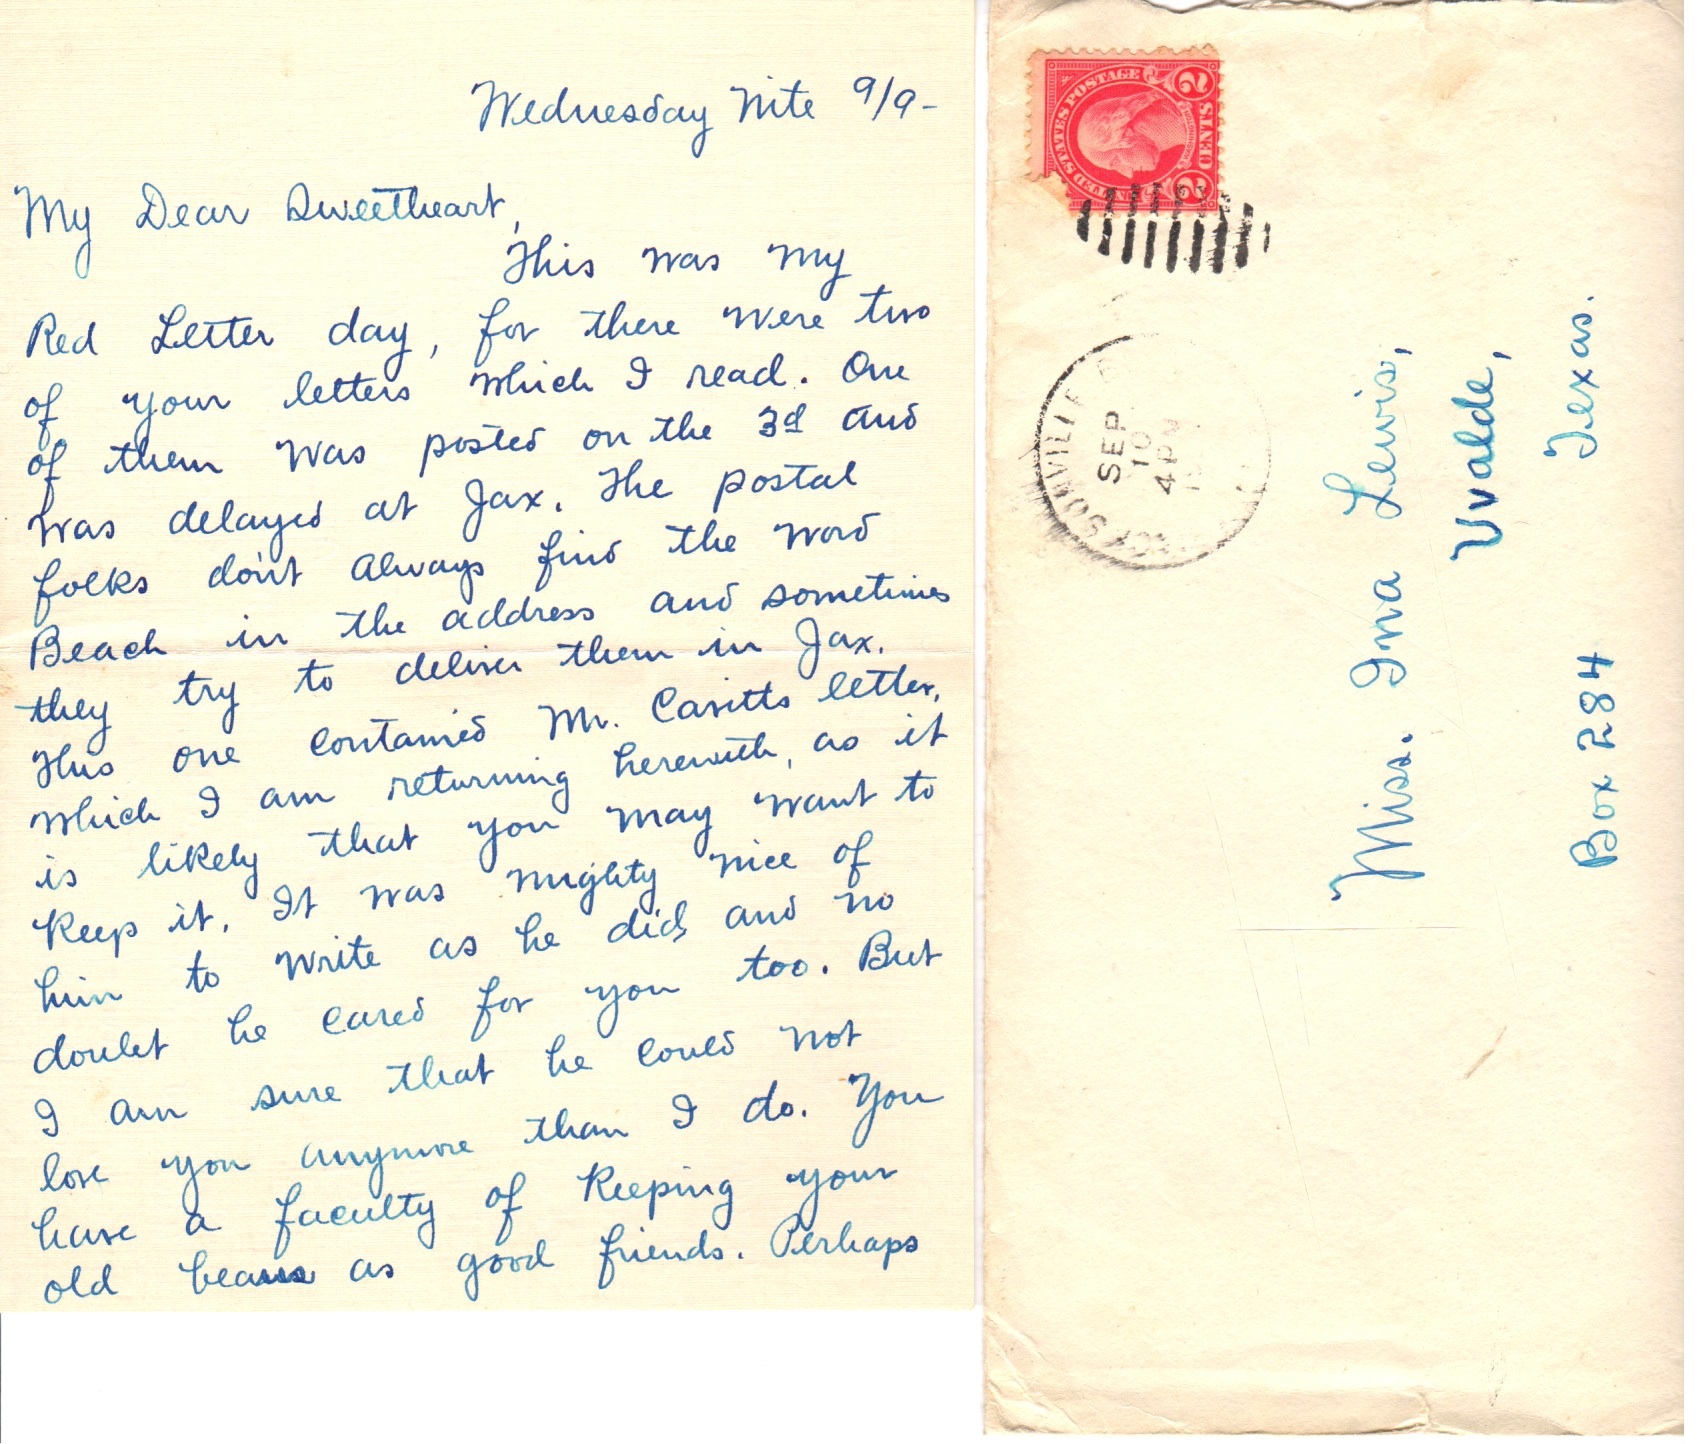 Wednesday Nite 9/9-
My Dear Sweetheart,
This was my
Red Letter day, for there were two
of your letters which I read. One
of them was posted on the 3d and
was delayed at Jax. The postal
folks don't always find the word
Beach in the address and sometimes
they try to deliver them in Jax.
This one contained Mr. Cavitts letter,
which I am returning herewith, as it
is likely that you may want to
keep it. It was mighty nice of
him to write as he did, and no
doubt he cared for you too. But
I am sure that he could not
love you anymore than I do. You
have a faculty of keeping your
old beaus as good friends. Perhaps
UNITED STATES POSTAGE
2 CENTS 2
SEP
10
4 PM
Miss. Ina Lewis,
Uvalde,
Box 284 Texas.